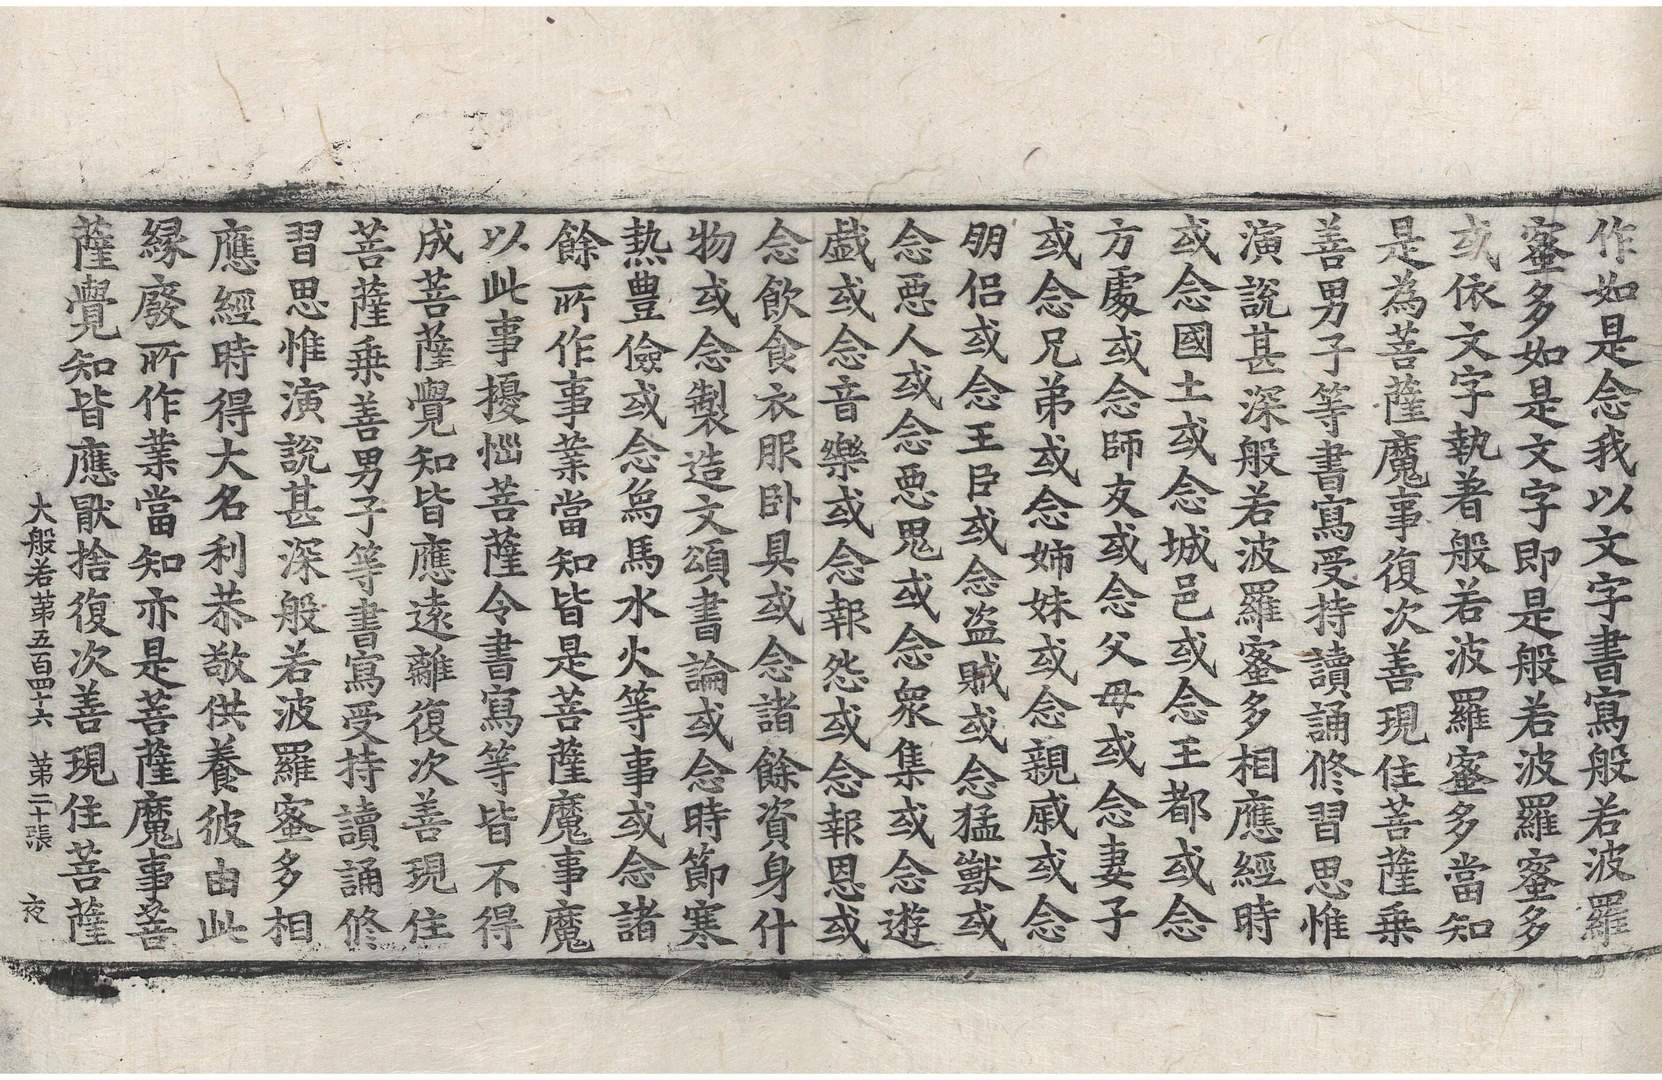 作如是念我以文字書寫般若波羅
蜜多如是文字即是般若波羅蜜多
或依文字執著般若波羅蜜多當知
是為菩薩魔事復次善現住菩薩乗
善男子等書寫受持讀誦修習思惟
演說甚深般若波羅蜜多相應經時
或念國土或念城邑或念王都或念
方處或念師友或念父母或念妻子
或念兄弟或念姉妹或念親戚或念
朋侶或念王臣或念盜賊或念猛獸或
念惡人或念惡鬼或念衆集或念遊
戲或念音樂或念報怨或念報恩或
念飲食衣服卧具或念諸餘資身什
物或念製造文頌書論或念時節寒
熱豊儉或念象馬水火等事或念諸
餘所作事業當知皆是菩薩魔事魔
以此事擾惱菩薩令書寫等皆不得
成菩薩覺知皆應遠離復次善現住
菩薩乗善男子等書寫受持讀誦修
習思惟演說甚深般若波羅蜜多相
應經時得大名利恭敬供養彼由此
緣廢所作業當知亦是菩薩魔事菩
薩覺知皆應猒捨復次善現住菩薩
大般若苐五百四十六 苐二十張 夜